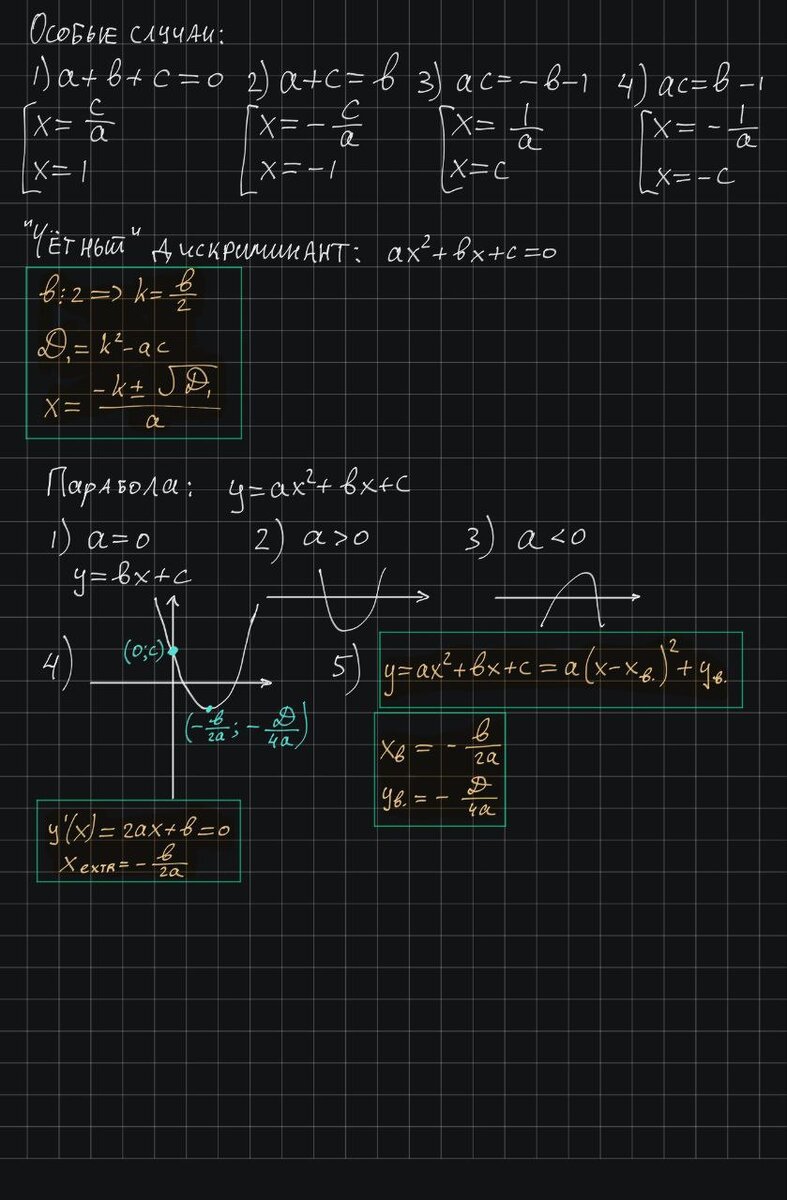 Особые случаи:
1) a+b+c=0 2) a+c=b 3) ac=-b-1 4) ac=b-1
[x=c/a [x=-c/a [x=1/a [x=-1/a
[x=1 [x=-1 [x=c [x=-c
"Чётный" дискриминант: ax²+bx+c=0
b⋮2=>k=b/2
D₁=k²-ac
x=(-k±√D₁)/a
Парабола: y=ax²+bx+c
1) a=0 2) a>0 3) a<0
y=bx+c
4) (0;c) 5) y=ax²+bx+c=a(x-xв.)²+yв.
(-b/2a;-D/4a)
xв=-b/2a
yв.=-D/4a
y'(x)=2ax+b=0
xextr=-b/2a